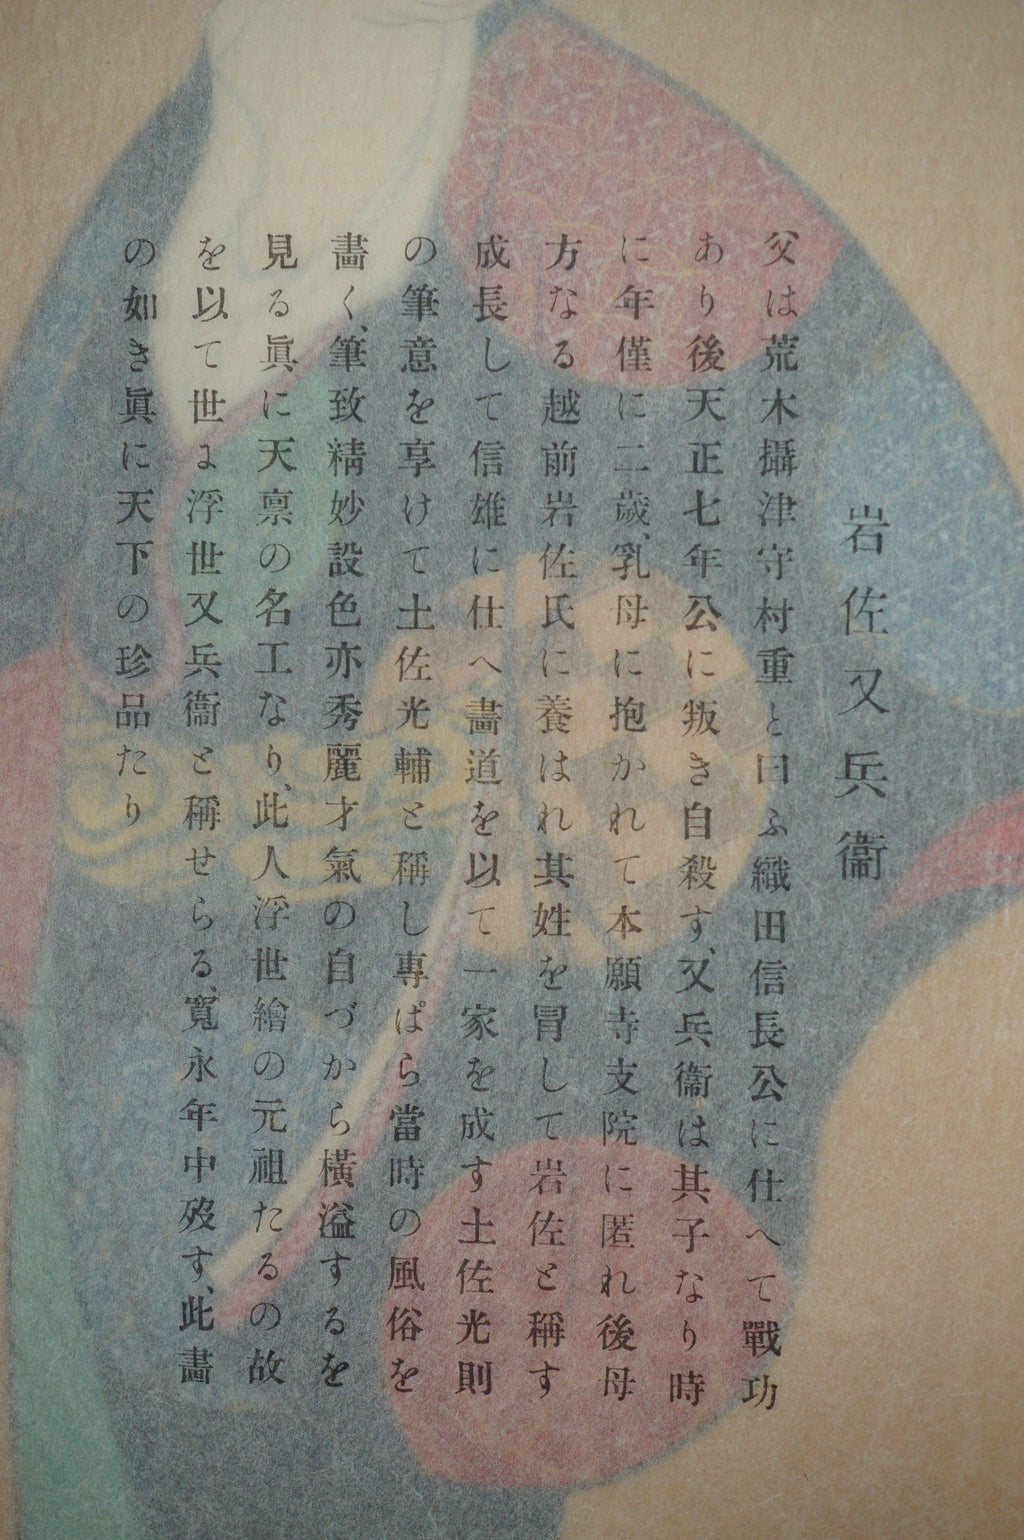 岩佐又兵衞
父は荒木攝津守村重と曰ふ織田信長公に仕へて戰功
あり後天正七年公に叛き自殺す、又兵衞は其子なり時
に年僅に二歳、乳母に抱かれて本願寺支院に匿れ後母
方なる越前岩佐氏に養はれ其姓を冐して岩佐と稱す
成長して信雄に仕へ畵道を以て一家を成す土佐光則
の筆意を享けて土佐光輔と稱し專ぱら當時の風俗を
畵く、筆致精妙設色亦秀麗才氣の自づから橫溢するを
見る眞に天禀の名工なり、此人浮世繪の元祖たるの故
を以て世ょ浮世又兵衞と稱せらる、寬永年中歿す、此畵
の如き眞に天下の珍品たり